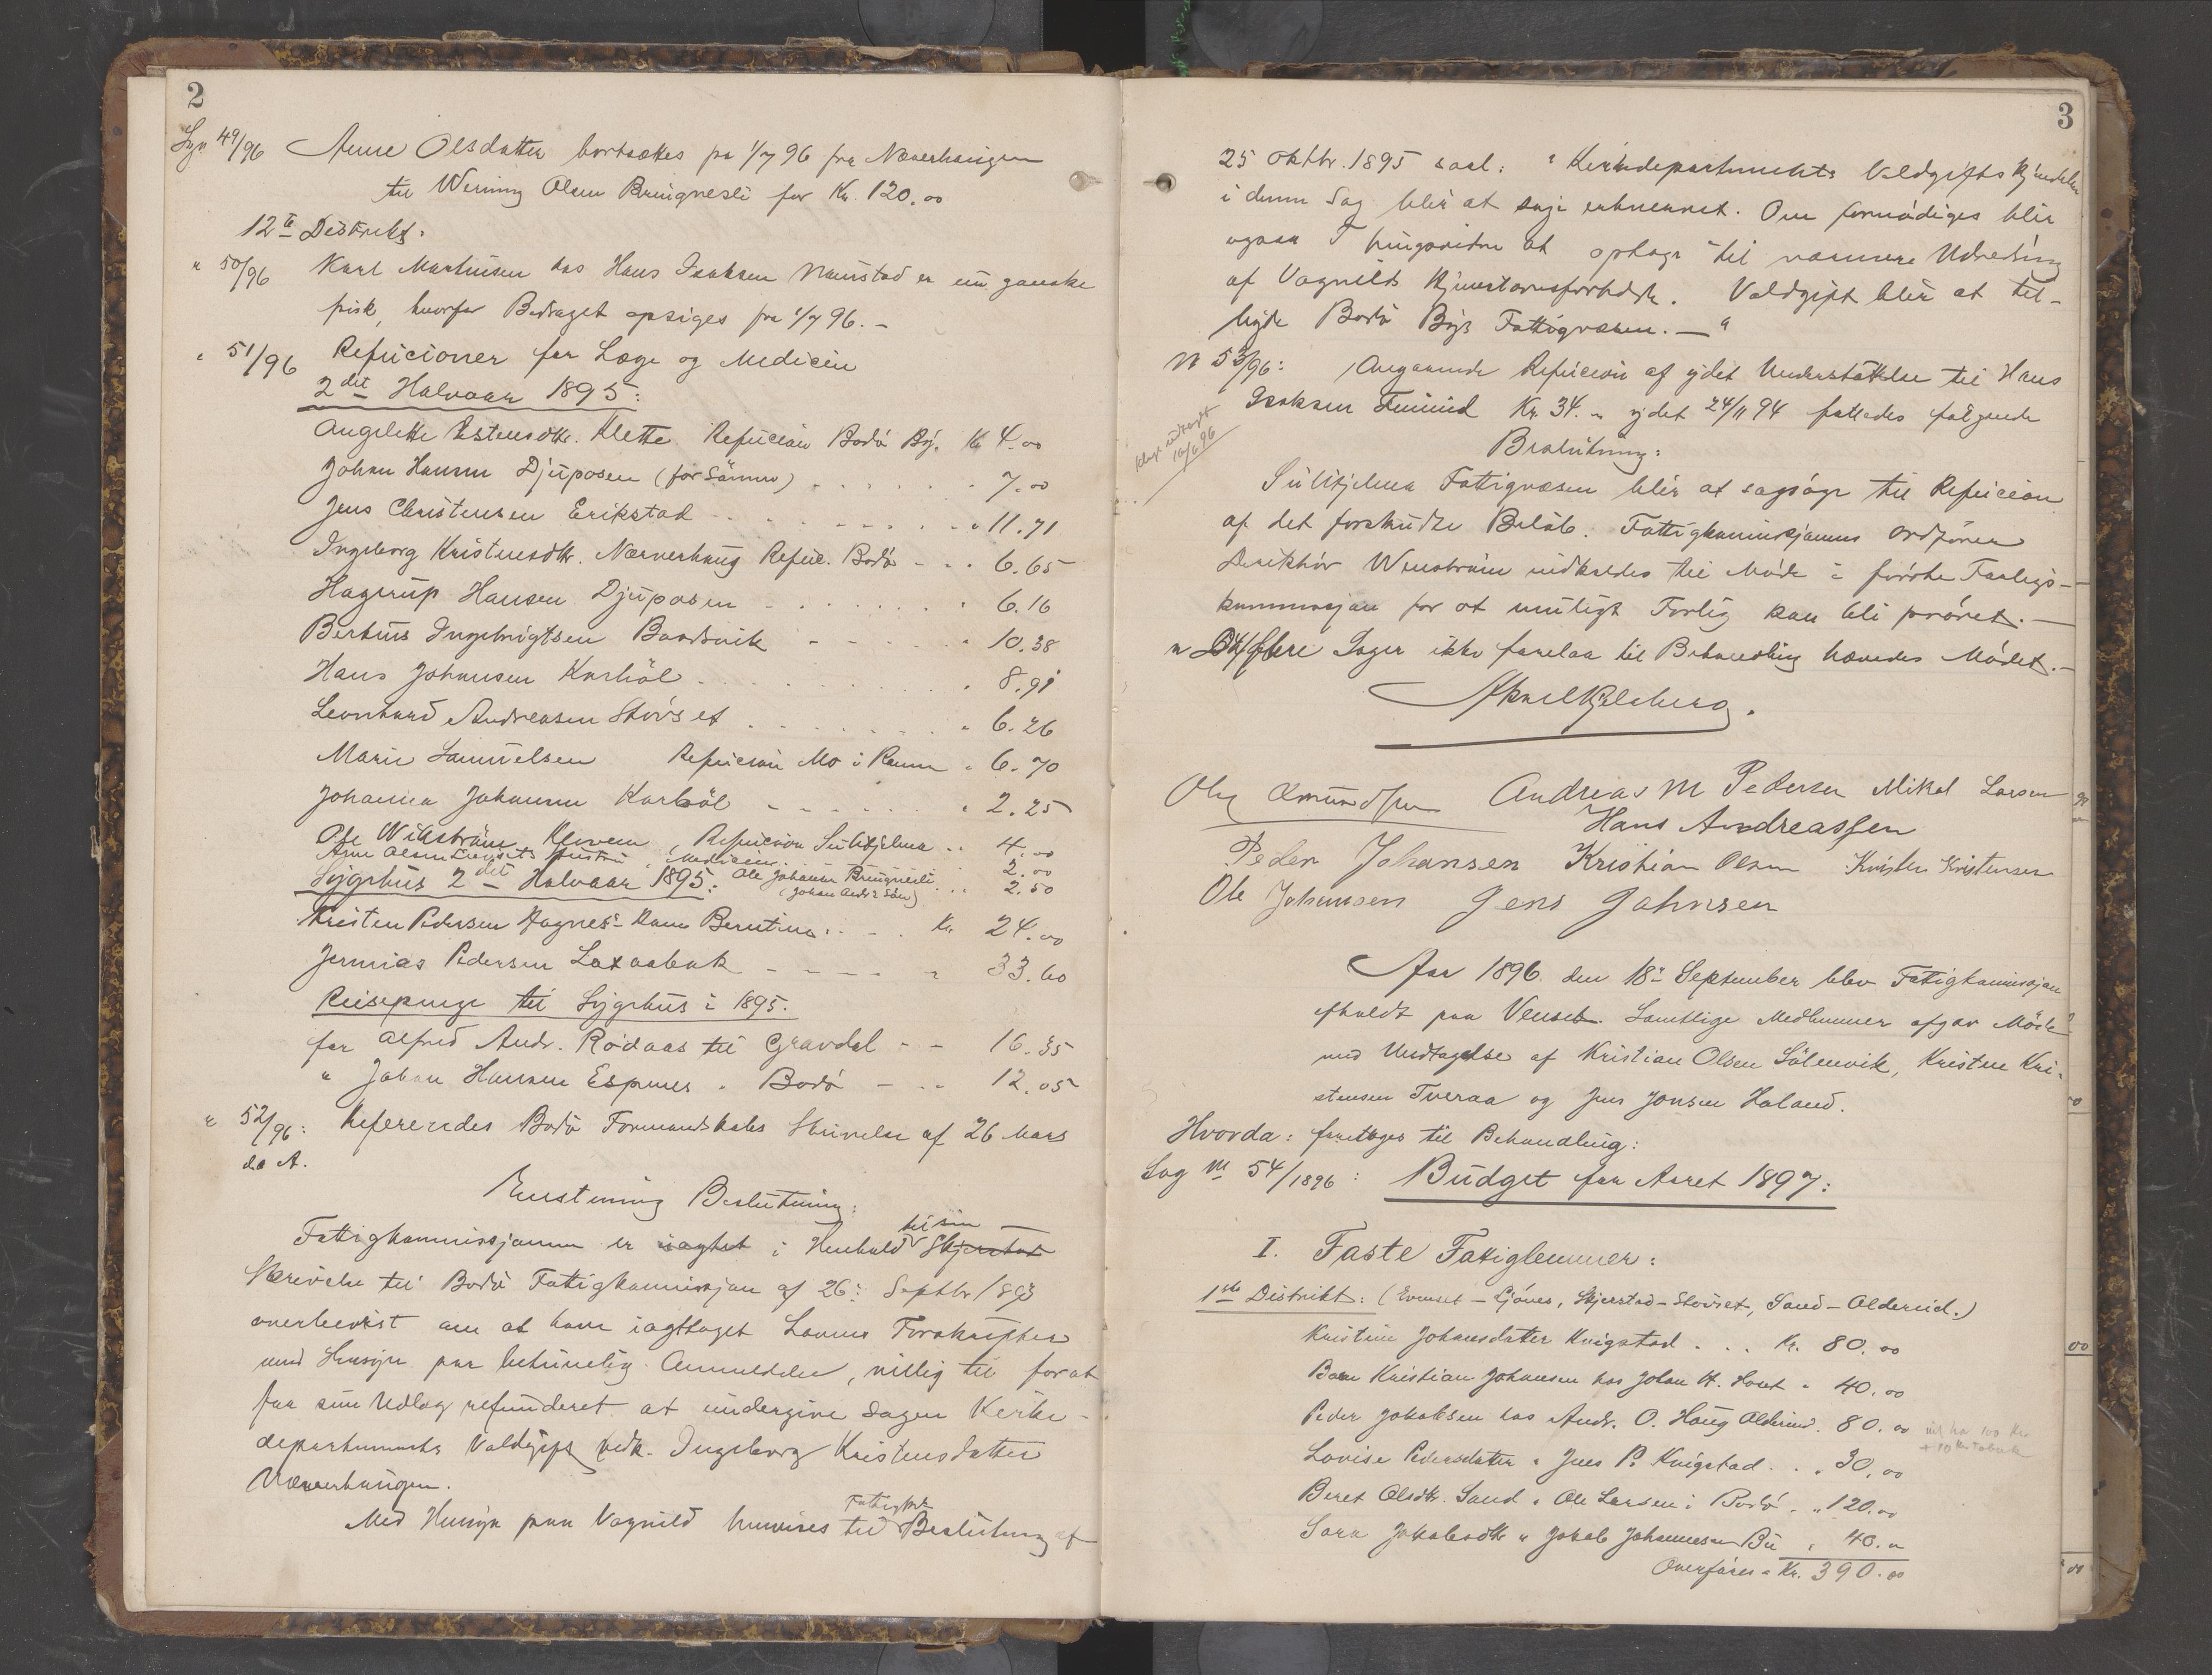 2
Sag 49/96 Anne Olsdatter bortsættes pa 1/7 96 fra Næverhaugen
til Werning Olsen Bringsli for Kr. 120.00
12te Distrikt:
" 50/96 Karl Martinsen hos Hans Isaksen Naurstad er nu ganske
frisk, hvorfor Bidraget opsiges fra 1/7 96. –
" 51/96 Refusioner for Læge og Medicin
2det Halvaar 1895:
Angelette Estensdtr. Klette Refusion Bodö By. Kr 4.00
Johan Hansen Djuposen (for Sönnen) 7.00
Jens Christensen Erikstad " 11.71
Ingeborg Kristensdtr. Næverhaug Refus. Bodö 6.65
Hagerup Hansen Djuposen " 6.16
Bertius Ingebrigtsen Baadsvik " 10.38
Hans Johansen Karhöl " 8.91
Leonhard Andreasen Stövset " 6.26
Marie Samuelsen Refusion Mo i Ranen " 6.70
Johanna Johansen Karhöl " 2.25
Ole Wikström Kloven, Refusion Sulitjelma 4.00
Arne Olsen Hustru, Medicin 2.00
Sygehus 2det Halvaar 1895. Ole Johansen Bringsli 2.50
(Johan Andr's Sön)
Kristen Pedersen Hagnes's Kone Berntine Kr. 24.00
Jermias Pedersen Laxaabak " 33.60
Reisepenge til Sygehus i 1895.
for Alfred Andr. Rödaas til Gravdal - - 16.35
" Johan Hansen Espnes " Bodö - - 12.05
" 52/96: Refereredes Bodö Formandskabs Skrivelse af 26 Mars
d. A.
Enstemmig Beslutning:
Fattigkommissjonen er i Henhold til sin Skjerstad
Skrivelse til Bodö Fattigkommisjon af 26: Septbr 1895
overbevist om at have iagttaget Lovens Forskrifter
med Hensyn paa betimelig Anmeldelse, villig til forat
faa sin Udlæg refunderet at undergive Sagen Kirke-
departements Voldgift vedk. Ingeborg Kristensdatter
Næverhaugen.
Med Hensyn paa Vagnild henvises til Fattigkom Beslutning af
3
25 oktbr. 1895 saal: "Kirkedepartementets Voldgiftskjendelse
i denne Sag blir at erkjennet. Om formodiges blir
ogsaa Thingsvidne at optage til nærmere Udredning
af Vagnilds Hjemstavnsforhold. Voldgift blir at til-
byde Bodö Bys Fattigvæsen. — "
No 53/96: Angaaende Refusion af ydet Understöttelse til Hans
Isaksen Kr. 34. " ydet 24/11 94 fattedes fölgende
Beslutning:
Klage udtagt
10/6 96
Sulitjelma Fattigvæsen blir at sagsöge til Refusion
af det forskudte Belöb. Fattigkommisjonens Ordförer
Direktör Wenström indkaldes til Möde i förste Forligs-
kommisjon for at muligt Forlig kan bli prövet. —
" 54/ flere Sager ikke forelaa til Behandling hævedes Mödet. —
Andreas M Pedersen Mikal Larsen
Hans Andreassen
Peder Johansen Kristian Olsen Kristen Kristensen
Ole Johansen Jens Johnsen
Aar 1896 den 18: September blev Fattigkommisjon
afholdt paa Venset. Samtlige Medlemmer afgav Möde
med Undtagelse af Kristian Olsen Sölenvik, Kristen Kri-
stensen Tveraa og Jens Jonsen Haland.
Hvorda: foretages til Behandling:
Sag No 54/1896: Budget for Aaret 1897:
I. Faste Fattiglemmer:
1ste Distrikt: (Evenset - Ljönes, Skjerstad - Stövset, Sand - Oldereid.)
Kristine Johansdatter Kvigstad . . . Kr. 80.00
Barn Kristian Johansen hos Johan H. " 40.00
Peder Jakobsen hos Andr. O. Haug Oldereid. 80.00 vil ha 100 Kr
+ 10 Kr Tobak
Lovise Pedersdatter " Jens P. Kvigstad . . " 30.00
Beret Olsdtr. Sand " Ole Larsen i Bodö . " 120.00
Sara Jakobsdtr " Jakob Johannesen Bu " 40. "
Overföres " Kr. 390.00